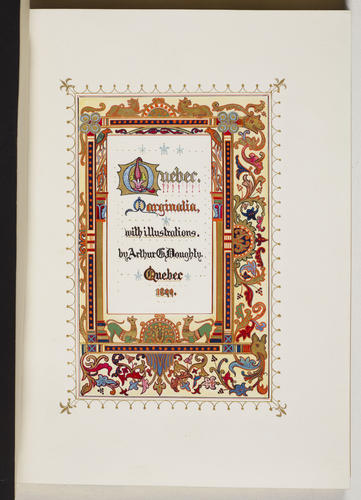 Quebec,
Marginalia,
with illustrations.
by Arthur G. Doughty.
Quebec
1899.